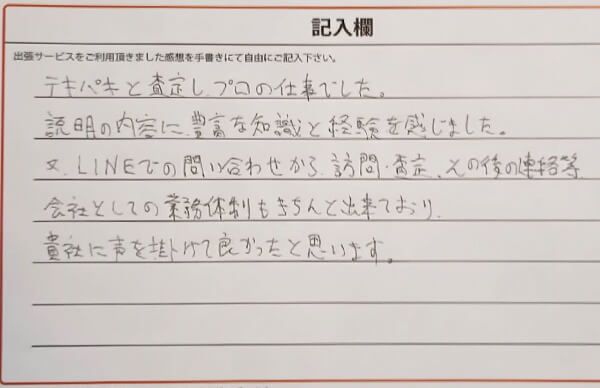 記入欄
出張サービスをご利用頂きました感想を手書きにて自由にご記入下さい。
テキパキと査定し、プロの仕事でした。
説明の内容に豊富な知識と経験を感じました。
又、LINEでの問い合わせから、訪問・査定、その後の連絡等
会社としての業務体制もきちんと出来ており、
貴社に声を掛けて良かったと思います。